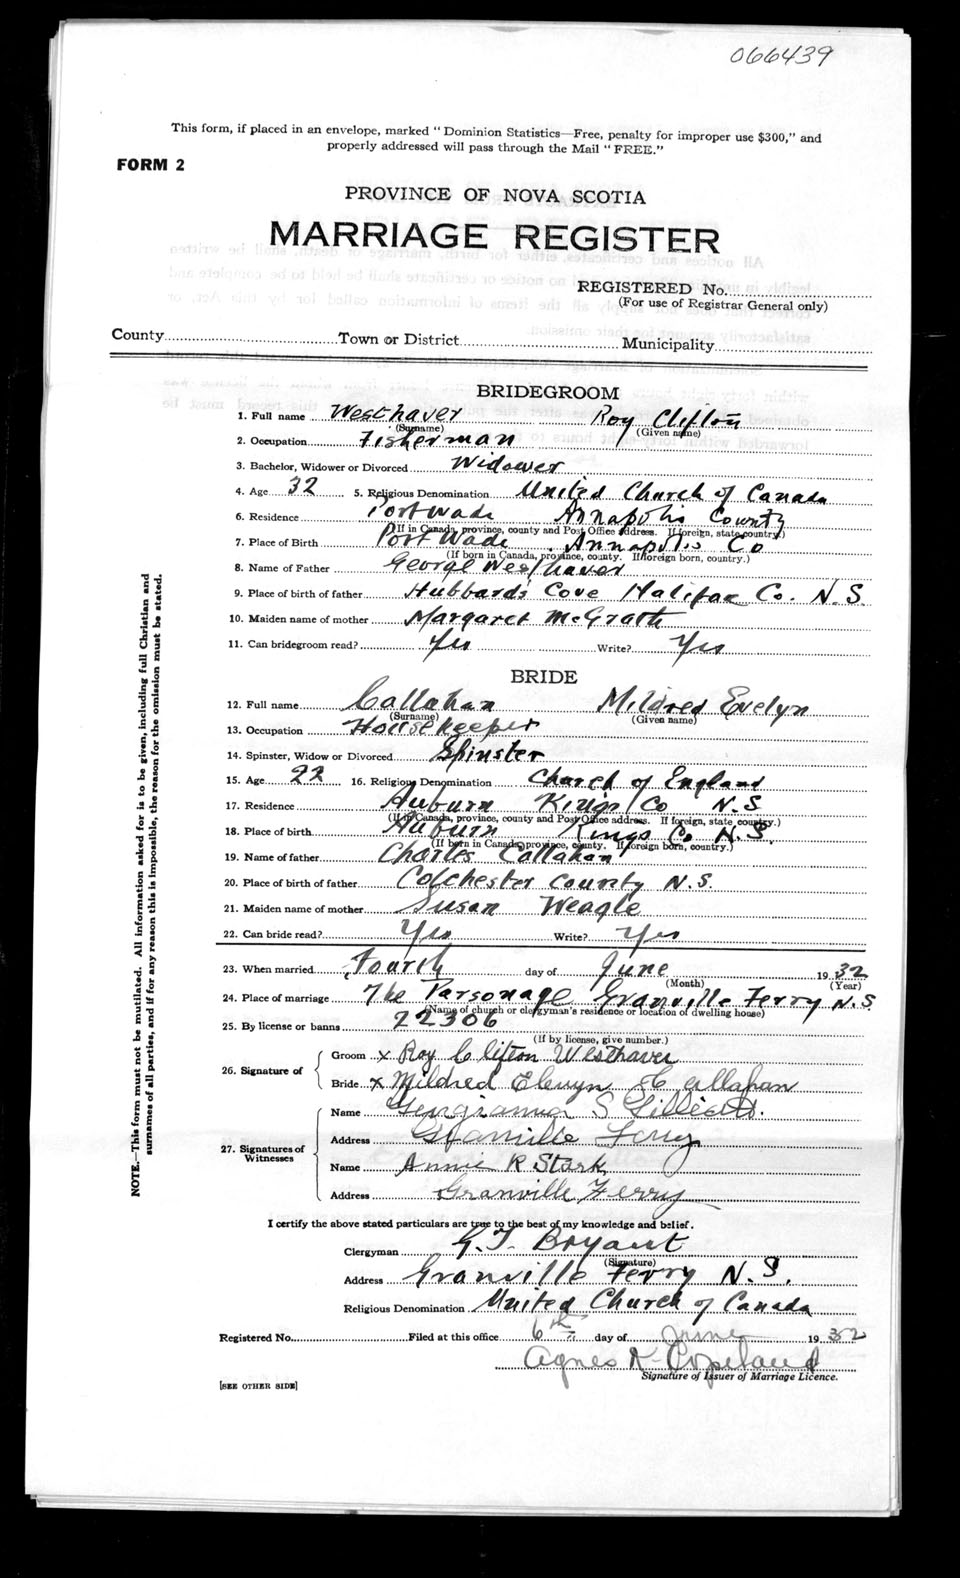 066439
This form, if placed in an envelope, marked "Dominion Statistics—Free, penalty for improper use $300," and
properly addressed will pass through the Mail "FREE."
FORM 2
PROVINCE OF NOVA SCOTIA
MARRIAGE REGISTER
REGISTERED No.
(For use of Registrar General only)
County Town or District Municipality
BRIDEGROOM
1. Full name Westhaver Roy Clifton
(Surname) (Given name)
2. Occupation Fisherman
3. Bachelor, Widower or Divorced Widower
4. Age 32 5. Religious Denomination United Church of Canada
6. Residence Port Wade Annapolis County
(If in Canada, province, county and Post Office address. If foreign, state country.)
7. Place of Birth Port Wade Annapolis Co
(If born in Canada, province, county. If foreign born, country.)
8. Name of Father George Westhaver
9. Place of birth of father Hubbards Cove Halifax Co. N.S.
10. Maiden name of mother Margaret McGrath
11. Can bridegroom read? Yes Write? Yes
BRIDE
12. Full name Callahan Mildred Evelyn
(Surname) (Given name)
13. Occupation Housekeeper
14. Spinster, Widow or Divorced Spinster
15. Age 22 16. Religious Denomination Church of England
17. Residence Auburn Kings Co N.S
(If in Canada, province, county and Post Office address. If foreign, state country.)
18. Place of birth Auburn Kings Co N.S.
(If born in Canada, province, county. If foreign born, country.)
19. Name of father Charles Callahan
20. Place of birth of father Colchester County N.S.
21. Maiden name of mother Susan Weagle
22. Can bride read? Yes Write? Yes
23. When married Fourth day of June 1932
(Month) (Year)
24. Place of marriage The Parsonage Granville Ferry N.S
(Name of church or clergyman's residence or location of dwelling house)
25. By license or banns 22306
(If by license, give number.)
26. Signature of
Groom x Roy Clifton Westhaver
Bride x Mildred Callahan
27. Signatures of Witnesses
Name Georgianna S
Address Granville Ferry
Name Annie R Stark
Address Granville Ferry
I certify the above stated particulars are true to the best of my knowledge and belief.
Clergyman G. T. Bryant
(Signature)
Address Granville Ferry N.S.
Religious Denomination United Church of Canada
Registered No. Filed at this office 6th day of June 1932
Agnes K Copeland
Signature of Issuer of Marriage Licence.
[SEE OTHER SIDE]
NOTE.—This form must not be mutilated. All information asked for is to be given, including full Christian and
surnames of all parties, and if for any reason this is impossible, the reason for the omission must be stated.